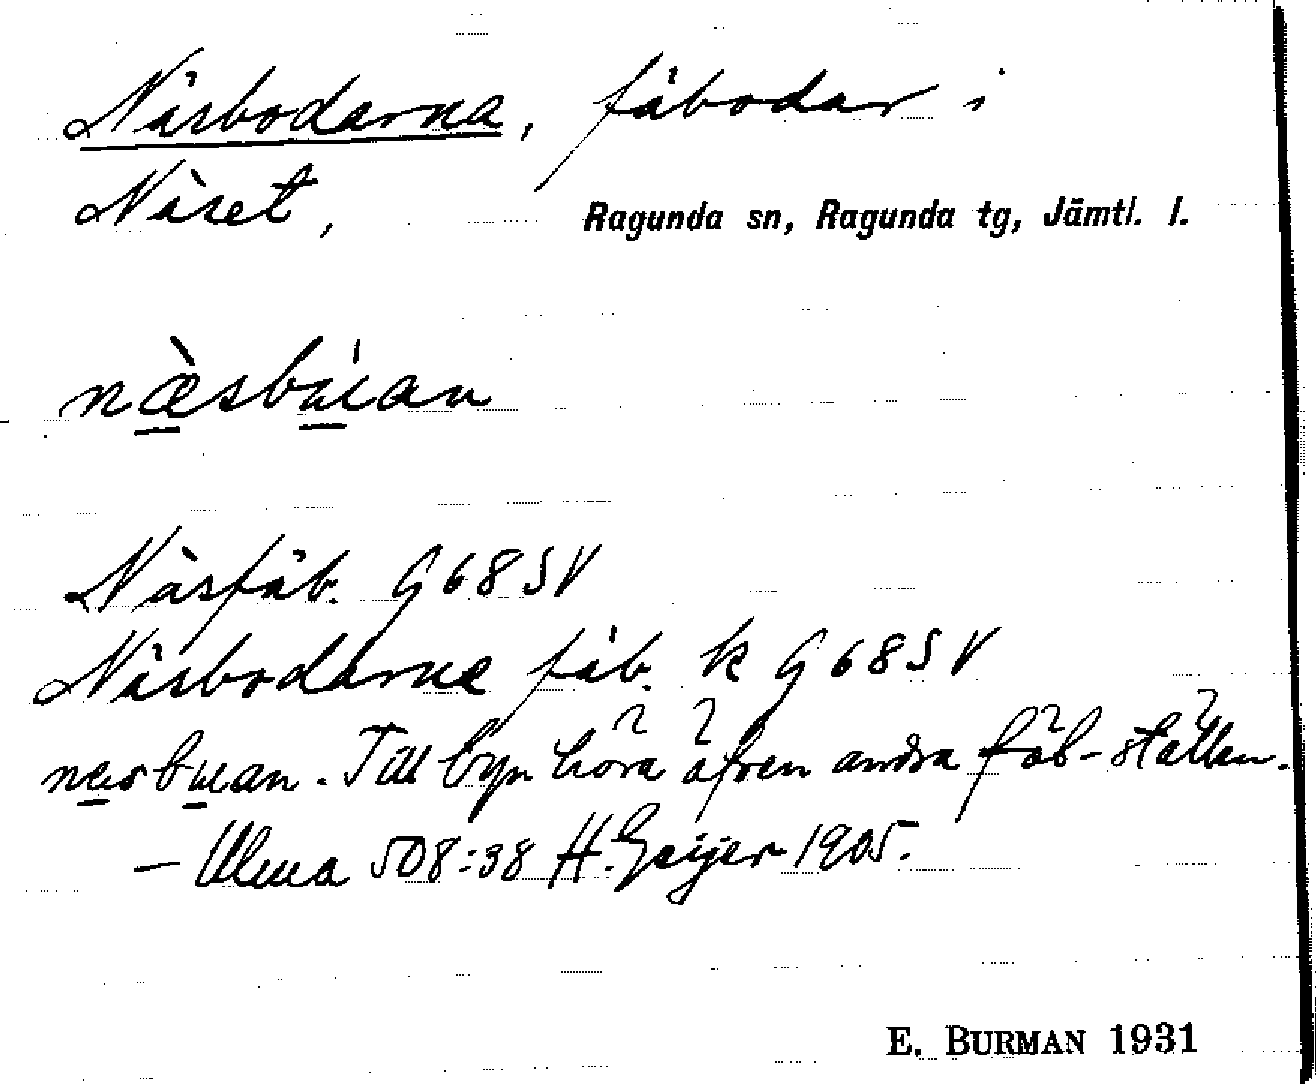 Näsbodarna, fäbodar i
Näset, Ragunda sn, Ragunda tg, Jämtl. l.
næ̀sbúan
Näsfäb. G 68 SV
Näsbodarne fäb. k G 68 SV
næsbuan. Till byn höra äfven andra fäb-ställen.
— Ulma 508:38 H. Geijer 1905.
E. BURMAN 1931